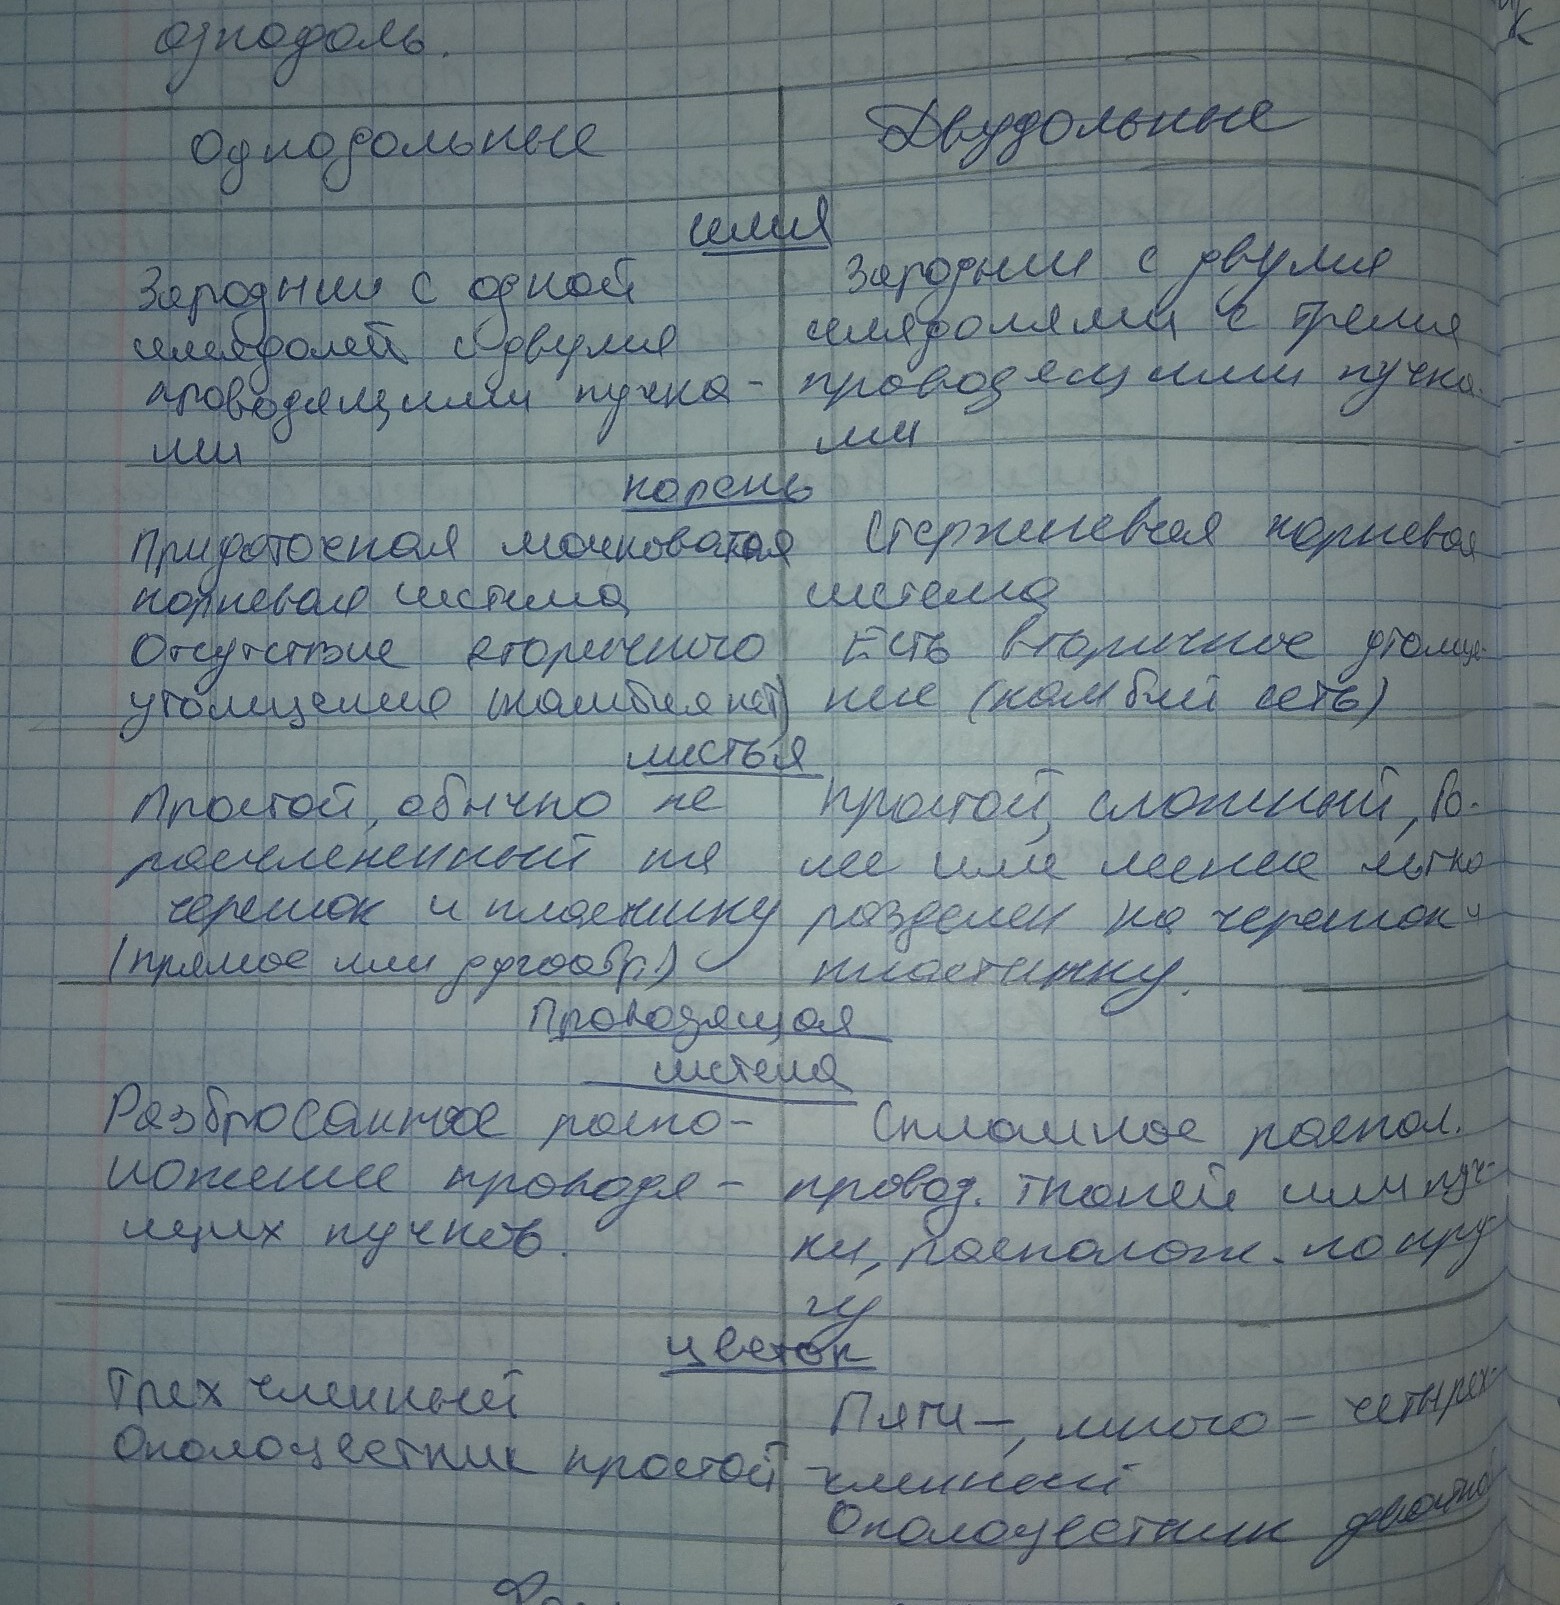 однодоль.
Однодольные
Двудольные
семя
Зародыш с одной
семядолей с двумя
проводящими пучка-
ми
Зародыш с двумя
семядолями с тремя
проводящими пучка-
ми
корень
Придаточная мочковатая
корневая система
Отсутствие вторичного
утолщения (камбия нет)
Стержневая корневая
система
Есть вторичное утолще-
ние (камбий есть)
листья
Простой, обычно не
расчлененный на
черешок и пластинку
(прямое или дугообр.)
Простой, сложный, бо-
лее или менее легко
разделен на черешок и
пластинку.
Проводящая
система
Разбросанное распо-
ложение проводя-
щих пучков.
Сплошное распол.
провод. тканей или пуч-
ки, располож. по кру-
гу
цветок
Трех членный
Околоцветник простой
Пяти-, много- четырех-
членный
Околоцветник